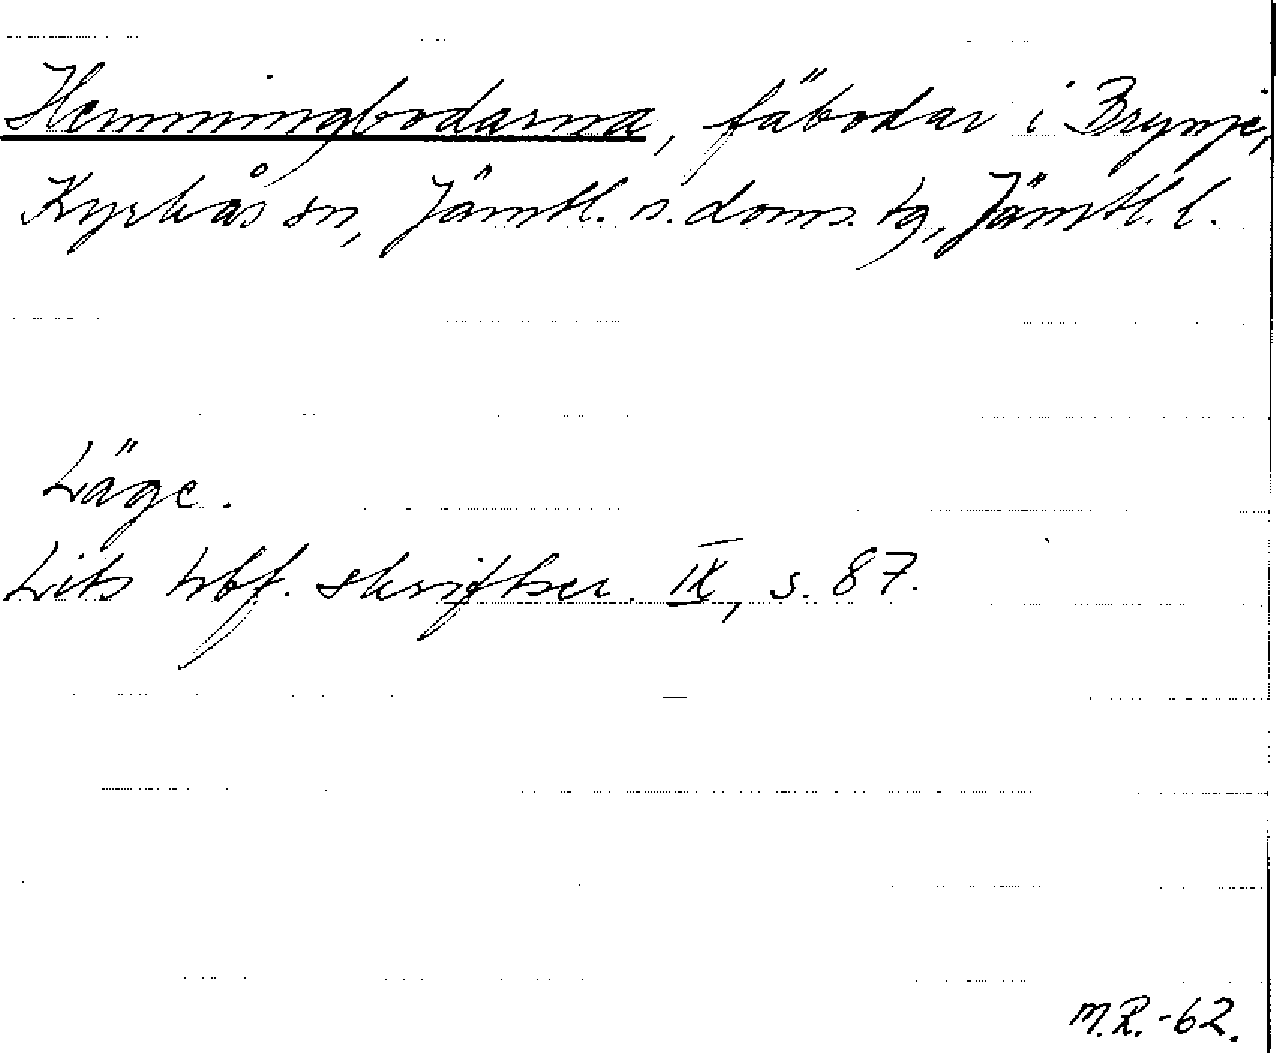 Hemmingbodarna, fäbodar i Brynje,
Kyrkås sn, Jämtl. n. doms. tg, Jämtl. l.
Läge.
Lits hbf. skriftser. IX, s. 87.
M.R.-62.